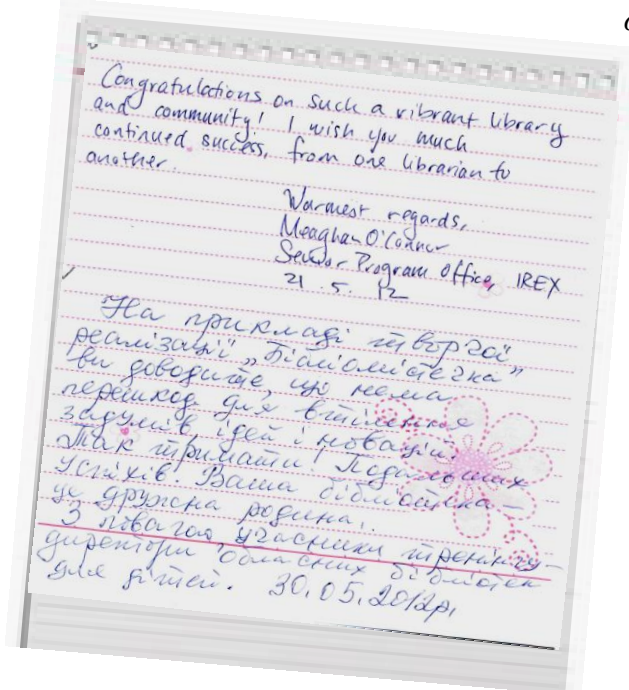 Congratulations on such a vibrant library
and community! I wish you much
continued success, from one librarian to
another.
Warmest regards,
Meaghan O'Connor
Senior Program Officer, IREX
21 . 5. 12
На прикладі творчої
реалізації „Бібліомістечка"
ви доводите, що нема
перешкод для втілення
задумів, ідей і новацій.
Так тримати! Подальших
успіхів. Ваша бібліотека –
це дружна родина.
З повагою, учасники тренінгу –
директори обласних бібліотек
для дітей. 30.05.2012р.